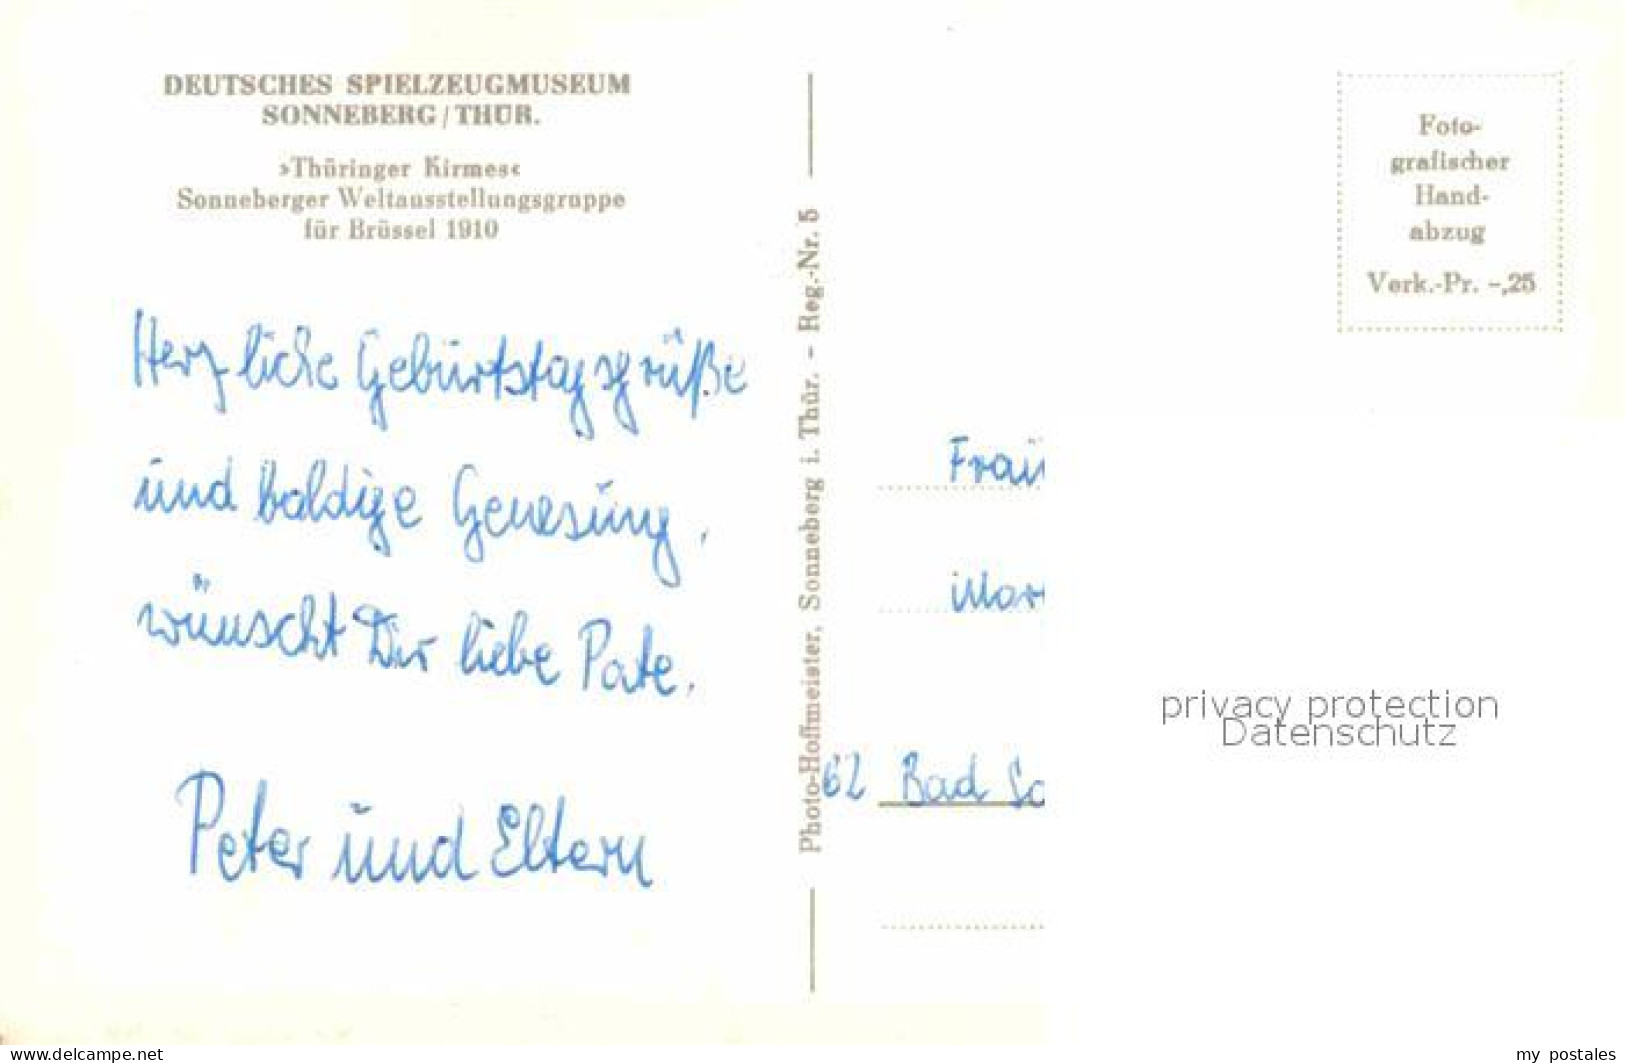 DEUTSCHES SPIELZEUGMUSEUM
SONNEBERG/THÜR.
»Thüringer Kirmes«
Sonneberger Weltausstellungsgruppe
für Brüssel 1910
Herzliche Geburtstagsgrüße
und baldige Genesung,
wünscht Dir liebe Pate.
Peter und Eltern
Photo-Hoffmeister, Sonneberg i. Thür. - Reg.-Nr. 5
Foto-
grafischer
Hand-
abzug
Verk.-Pr. -,25
Frau
62 Bad
privacy protection
Datenschutz
www.delcampe.net
my_postales